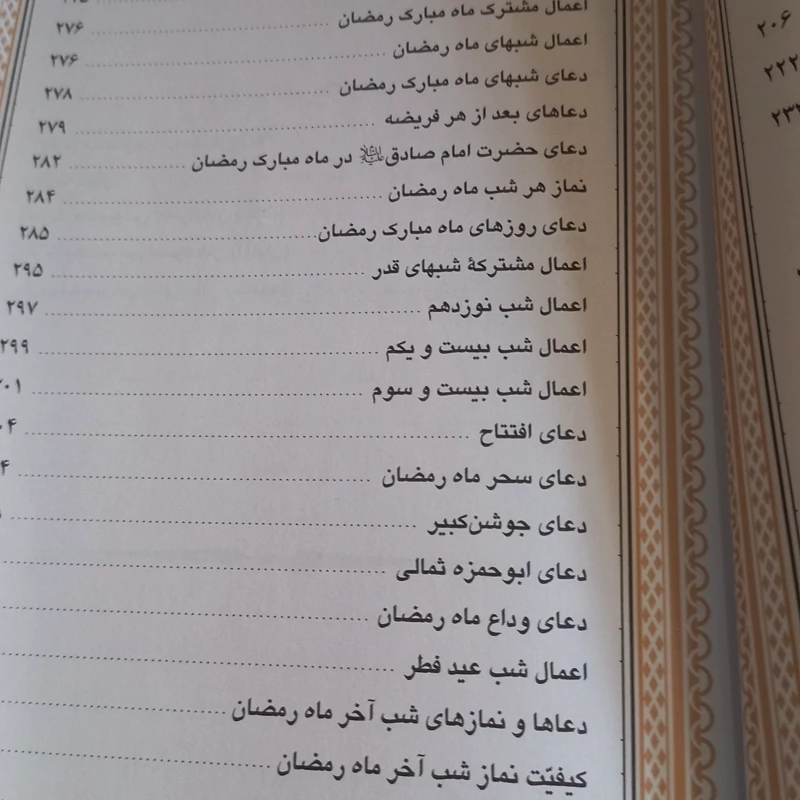 اعمال مشترک ماه مبارک رمضان ........ ۲۷۶
اعمال شبهای ماه رمضان ........ ۲۷۶
دعای شبهای ماه مبارک رمضان ........ ۲۷۸
دعاهای بعد از هر فریضه ........ ۲۷۹
دعای حضرت امام صادق علیه‌السلام در ماه مبارک رمضان ........ ۲۸۲
نماز هر شب ماه رمضان ........ ۲۸۴
دعای روزهای ماه مبارک رمضان ........ ۲۸۵
اعمال مشترکهٔ شبهای قدر ........ ۲۹۵
اعمال شب نوزدهم ........ ۲۹۷
اعمال شب بیست و یکم ........ ۲۹۹
اعمال شب بیست و سوم ........
دعای افتتاح ........
دعای سحر ماه رمضان ........
دعای جوشن‌کبیر ........
دعای ابوحمزه ثمالی ........
دعای وداع ماه رمضان ........
اعمال شب عید فطر ........
دعاها و نمازهای شب آخر ماه رمضان ........
کیفیّت نماز شب آخر ماه رمضان ........
۲۰۶
۲۲۲